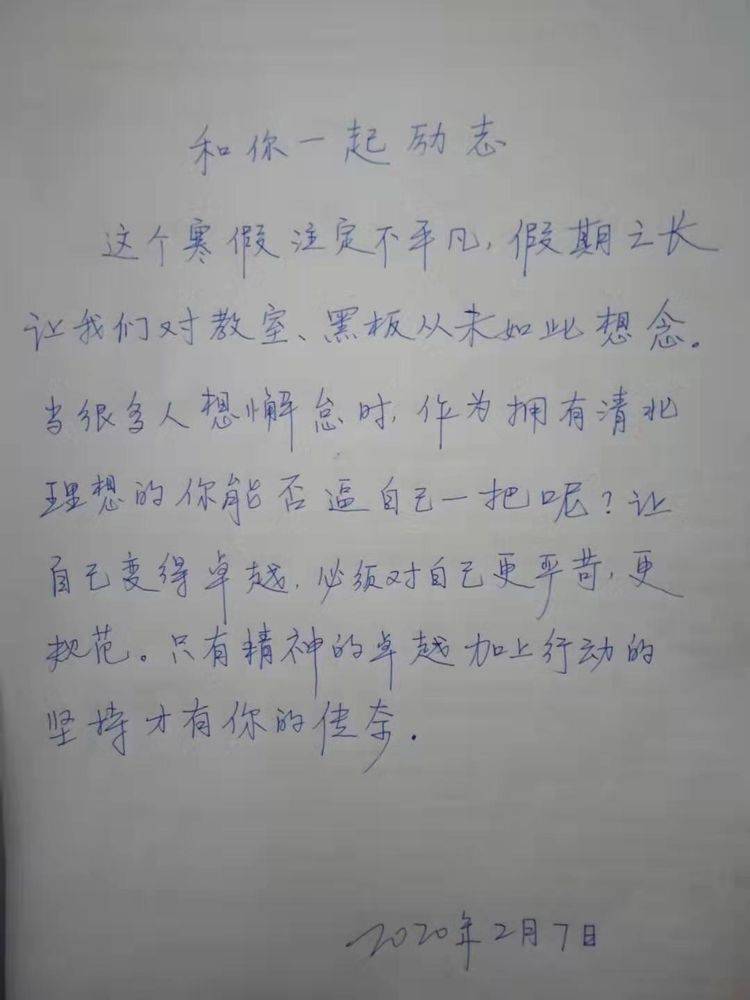 和你一起励志
这个寒假注定不平凡，假期之长
让我们对教室、黑板从未如此想念。
当很多人想懈怠时，作为拥有清北
理想的你能否逼自己一把呢？让
自己变得卓越，必须对自己更严苛，更
规范。只有精神的卓越加上行动的
坚持才有你的传奇.
2020年2月7日